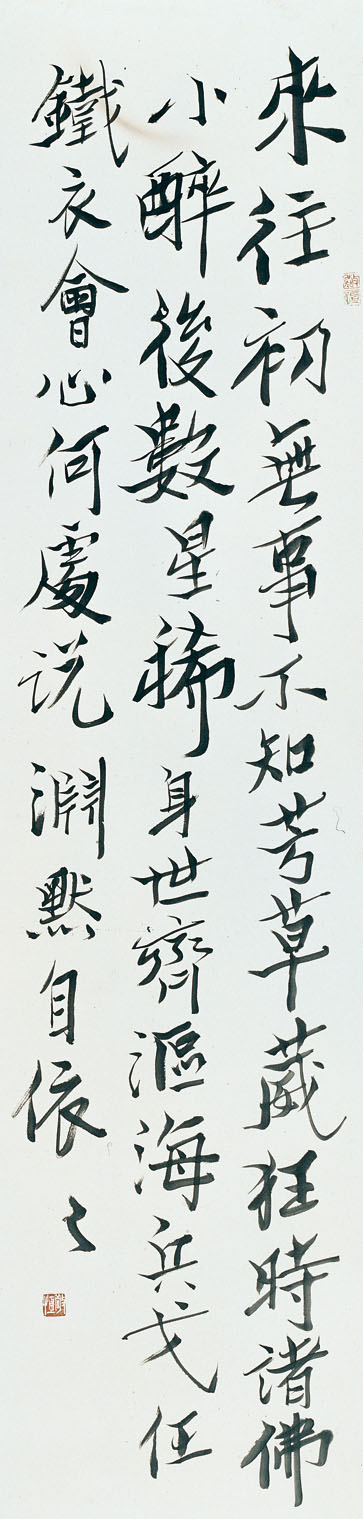 來往初無事不知芳草葳狂時諸佛
小醉後數星稀身世齊漚海兵戈任
鐵衣會心何處説淵默自依々